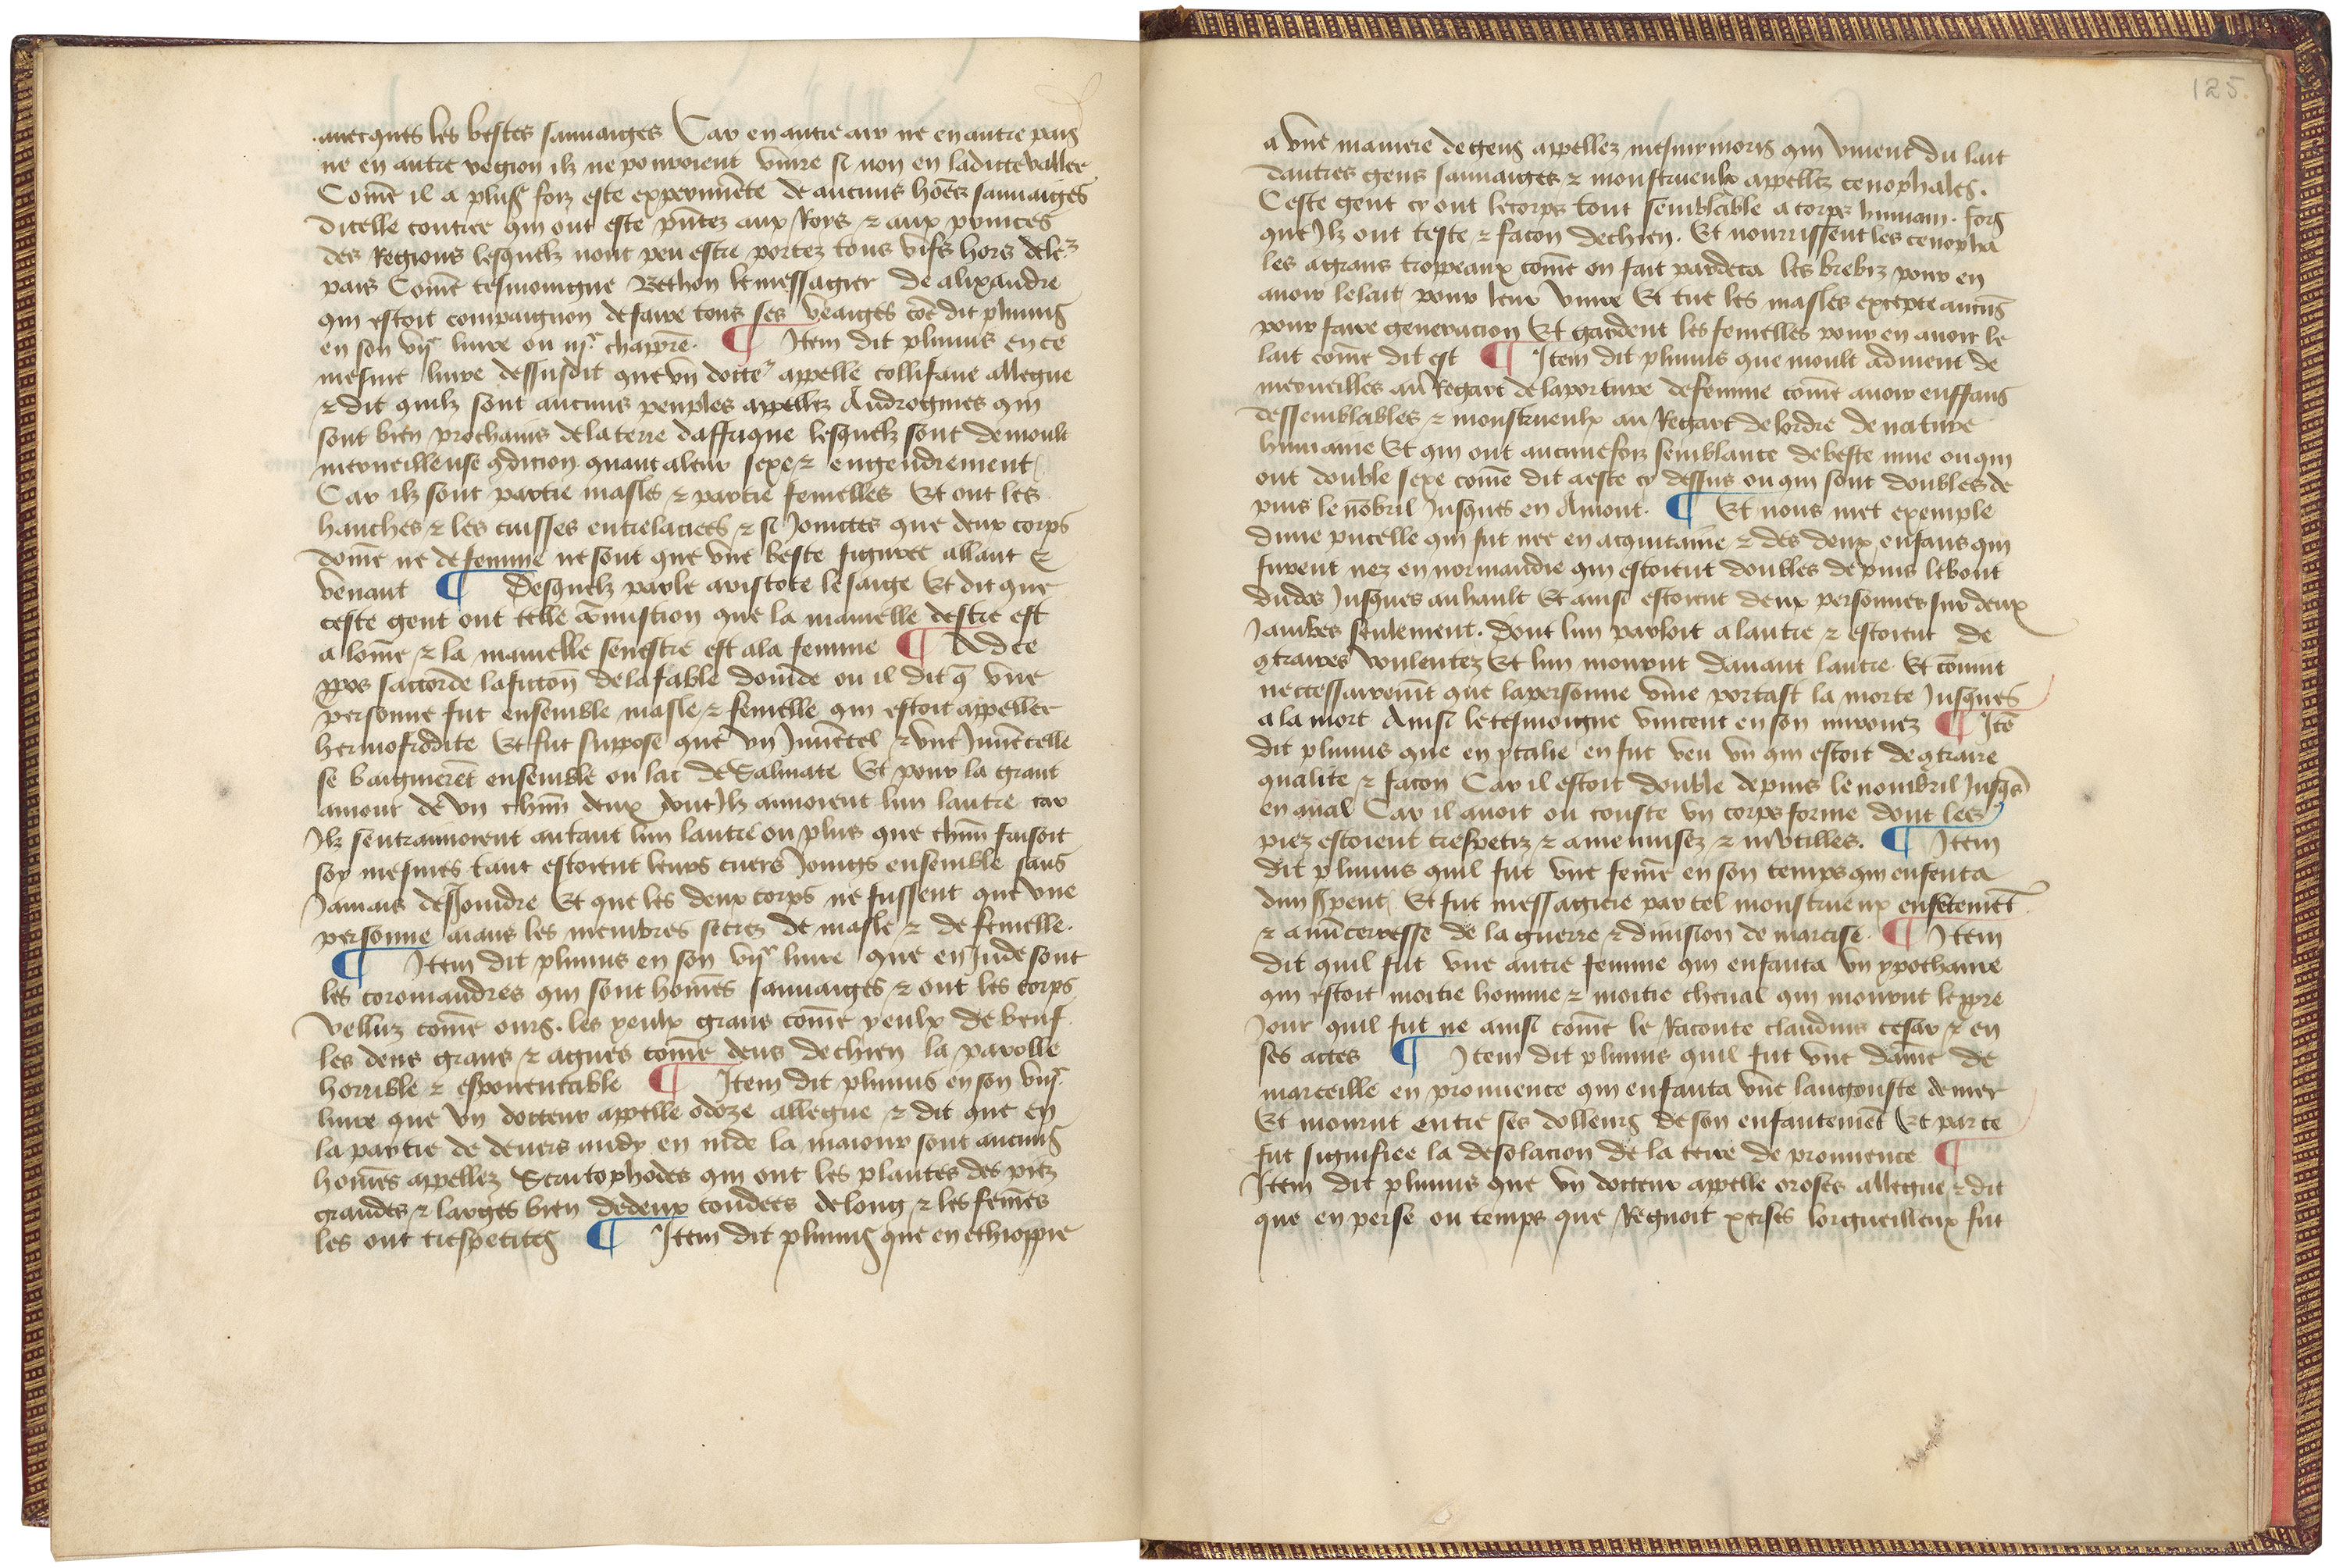 auecques les bestes sauuaiges Car en autre air ne en autre pais
ne en autre region ilz ne pouroient viure si non en ladicte vallee
Come il a plus forz este experimente de aucuns hoes sauuaiges
dicelle contree qui ont este pntez aux Roys & aux princes
des Regions lesquelz nont peu estre portez tous vifs hors de le
pais Come tesmoingne Bethon le messagier de alixandre
qui estoit compaignon de faire tous ses veaiges coe dit plinius
en son vij liure ou iij chappre ¶ Item dit plinius en ce
mesme liure dessusdit que vn docte appelle collifane allegue
& dit quilz sont aucuns peuples appellez Androgines qui
sont bien prochains de la terre daffrique lesquelz sont de moult
merueilleuse gdicion quant a leur sexe & engendrement
Car ilz sont partie masles & partie femelles Et ont les
hanches & les cuisses entrelacees & si Joinctes que deux corps
dome ne de femme ne sont que vne beste figuree allant &
venant ¶ Desquelz parle aristote le saige Et dit que
ceste gent ont telle comistion que la mamelle destre est
a lome & la mamelle senestre est a la femme ¶ A de ce
ppos saccorde la ficcon de la fable douide ou il dit q vne
personne fut ensemble masle & femelle qui estoit appellee
hermofrodite Et fut suppose que vn Juuecel & vne Juuecelle
se baignerent ensemble ou lac de Salmate Et pour la grant
amour de vn chun deux dont Ilz auoient lun lautre car
Ilz sentramoient autant lun lautre ou plus que chun faisoit
soy mesmes tant estoient leurs cuers Joings ensemble sans
Jamais desJoindre Et que les deux corps ne fussent que vne
personne aians les membres secrez de masle & de femelle.
¶ Item dit plinius en son vij liure que en Inde sont
les coromandres qui sont homes sauuaiges & ont les corps
velluz come ours. les yeulx grans come yeulx de beuf
les dens grans & agues come dens de chien la parolle
horrible & espouentable ¶ Item dit plinius en son viij
liure que vn docteur appelle odoze allegue & dit que en
la partie de deuers midy en inde la maiour sont aucuns
homes appellez Scritophodes qui ont les plantes des piez
grandes & larges bien de deux coudees de long & les femes
les ont trespetites ¶ Item dit plinius que en ethioppie
125.
a vne maniere de gens appellez mesnymoris qui viuent du lait
dautres gens sauuaiges & monstrueulx appellez cenophales.
Ceste gent cy ont le corps tout semblable a corps humain. fors
que Ilz ont teste & facon de chien. Et nourrissent les cenopha
les a grans troppeaux come on fait par deca les brebiz pour en
auoir le lait pour leur viure Et tue les masles excepte aucuns
pour faire generacion Et gardent les femelles pour en auoir le
lait come dit est ¶ Item dit plinius que moult aduient de
merueilles au Regart de la porture de femme come auoir enffans
dessemblables & monstrueulx au Regart de lordre de nature
humaine Et qui ont aucuneforz semblance de beste mue ou qui
ont double sexe come dit a este cy dessus ou qui sont doubles de
puis le nobril Jusques en Amont. ¶ Et nous met exemple
dune pucelle qui fut nee en acquitaine & des deux enfans qui
furent nez en normandie qui estoient doubles de puis le bout
du dos Jusques au hault Et ainsi estoient deux personnes sur deux
Jambes seulement. dont lun parloit a lautre & estoient de
graires voulentez Et lun mourut dauant lautre. Et couint
neccessairemt que la personne viue portast la morte Jusques
a la mort Ainsi le tesmoigne vincent en son mirouez ¶ Ite
dit plinius que en ytalie en fut veu vn qui estoit de graire
qualite & facon Car il estoit double depuis le nombril Jusqs
en aual Car il auoit ou couste vn corps forme dont les
piez estoient trespetiz & amenuisez & inutilles. ¶ Item
dit plinius quil fut vne feme en son temps qui enfenta
dun spent Et fut messagiere par tel monstrueux enfetemet
& anuceresse de la guerre & diuision de marcise ¶ Item
dit quil fut vne autre femme qui enfanta vn ypothaire
qui estoit moitie homme & moitie cheual qui mourut le ppre
Jour quil fut ne ainsi come le Raconte claudius cesar & en
ses actes ¶ Item dit plinius quil fut vne dame de
marceille en prouuence qui enfanta vne langouste de mer
Et mourut entre ses dolleurs de son enfantemet Et par ce
fut signifiee la desolacion de la terre de prouuence ¶
Item dit plinius que vn docteur appelle oroses allegue & dit
que en perse ou temps que Regnoit xerses lorgueilleux fut